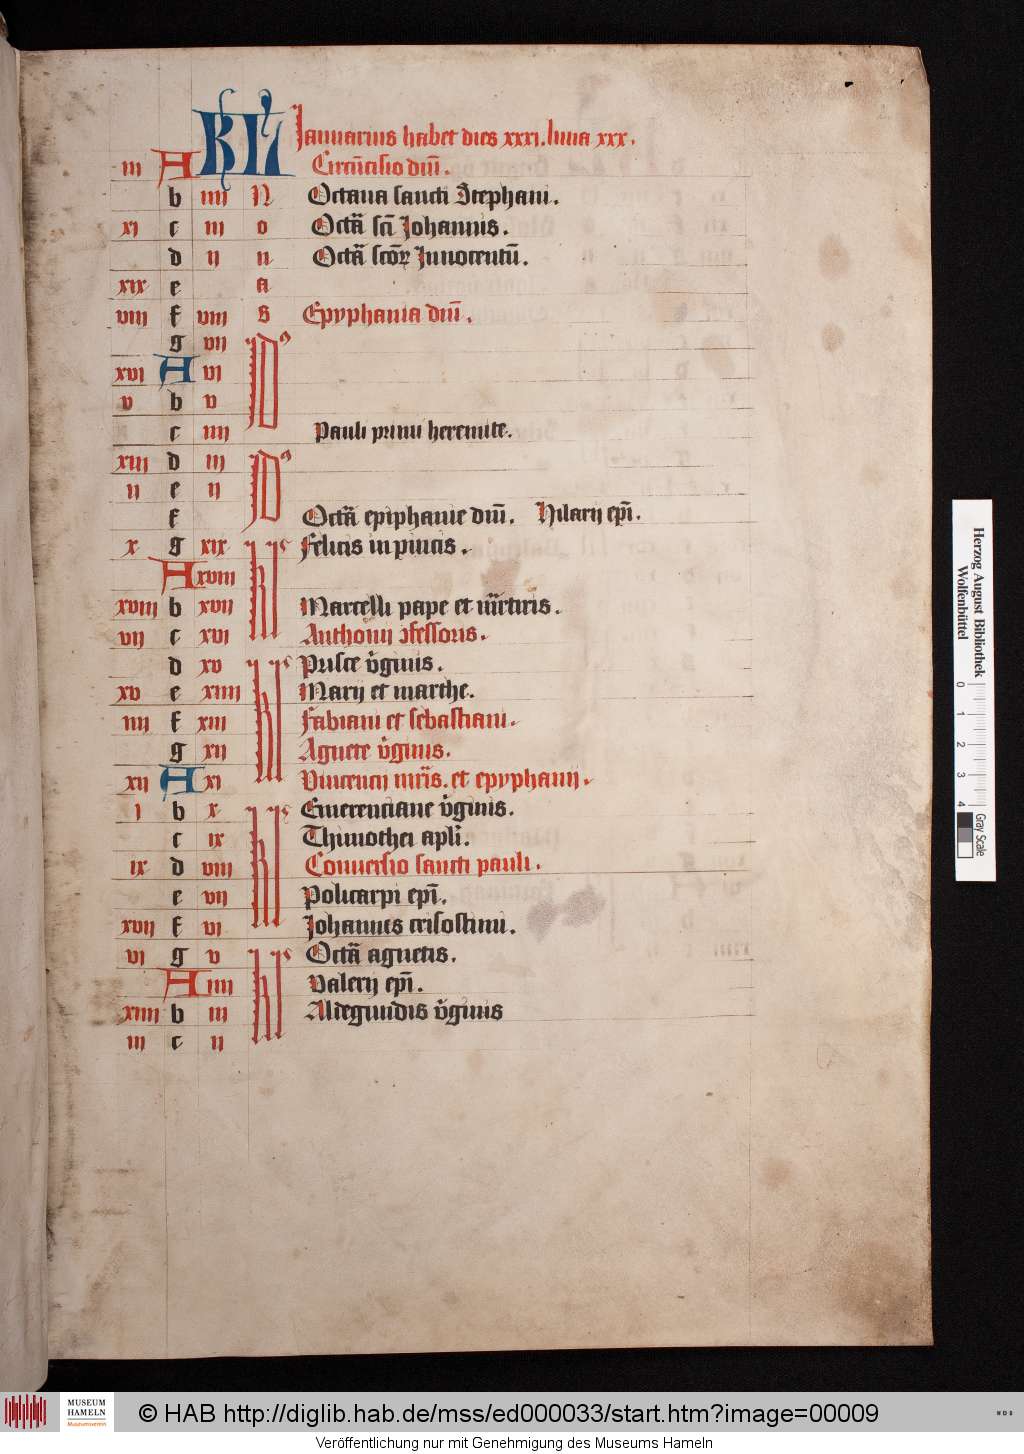 KL Januarius habet dies xxxi. luna xxx.
iii A Circūcisio dnī.
b iiii N Octaua sancti Stephani.
xi c iii o Octā scī Johannis.
d ii n Octā scōꝝ Innocentū.
xix e a
viii f viii s Epyphania dnī.
g vii Idꝰ
xvi A vi
v b v
c iiii Pauli primi heremite.
xiii d iii Idꝰ
ii e ii
f Octā epiphanie dnī. Hilarij epī.
x g xix kl Felicis in pincis.
A xviii
xviii b xvii Marcelli pape et mr̄tiris.
vii c xvi Anthonij ɔfessoris.
d xv kl Prisce v̄ginis.
xv e xiiii Marij et marthe.
iiii f xiii Fabiani et sebastiani.
g xii Agnete v̄ginis.
xii A xi Vincencij mr̄is. et epyphanij.
i b x kl Emerenciane v̄ginis.
c ix Thimothei apl̄i.
ix d viii Conuersio sancti pauli.
e vii Policarpi epī.
xvii f vi Johannis crisostimi.
vi g v kl Octā agnetis.
A iiii Valerij epī.
xiiii b iii Aldegundis v̄ginis
iii c ii
Herzog August Bibliothek
Wolfenbüttel
0 1 2 3 4
Gray Scale
MUSEUM
HAMELN
Museumsverein
© HAB http://diglib.hab.de/mss/ed000033/start.htm?image=00009
Veröffentlichung nur mit Genehmigung des Museums Hameln